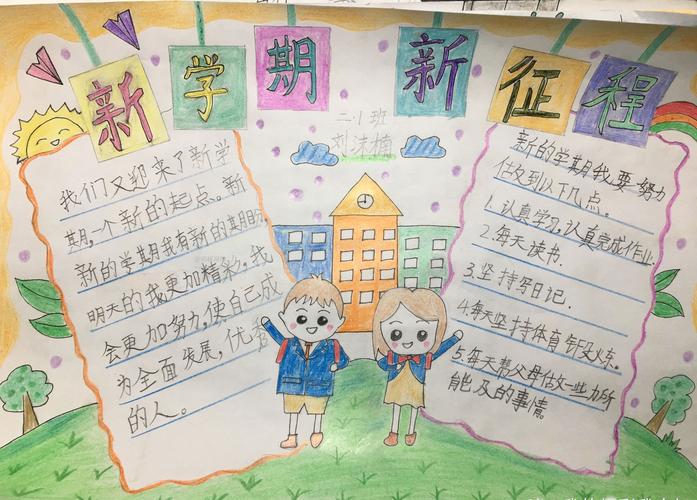 新学期新征程
二小班
刘沫楠
我们又迎来了新学
期,一个新的起点。新
新的学期我有新的期盼,
明天的我更加精彩,我
会更加努力,使自己成
为全面发展,优秀
的人。
新的学期,我要努力
估攵到以下几点。
1.认真学习,认真完成作业
2.每天读书.
3.坚持写日记.
4.每天坚持体育锻炼.
5.每天帮父母估攵一些力所
能及的事情。